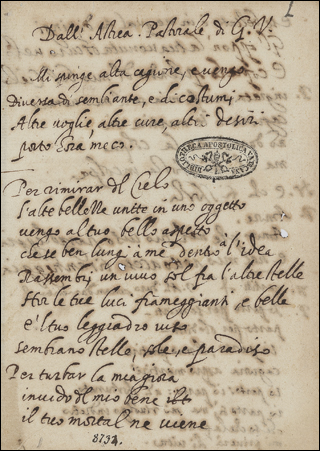 1
Dall'Astrea Pastorale di G. V.
Mi spinge alta cagione, e vengo
Diversa di sembiante, e di costumi,
Altre voglie, altre cure, altri desiri
porto hora meco.
BIBLIOTHECA APOSTOLICA VATICANA
Per rimirar del Cielo
l'alte bellezze unite in uno oggetto
vengo al tuo bello aspetto
che se ben lungi à me dentro à l'idea
Rassembri un vivo sol fra l'altre stelle
Son le tue luci fiammeggianti, e belle
e'l tuo leggiadro viso
sembrano stelle, sole, e paradiso
Per turbar la mia gioia
invido del mio bene
il tuo mortal ne viene
8732.